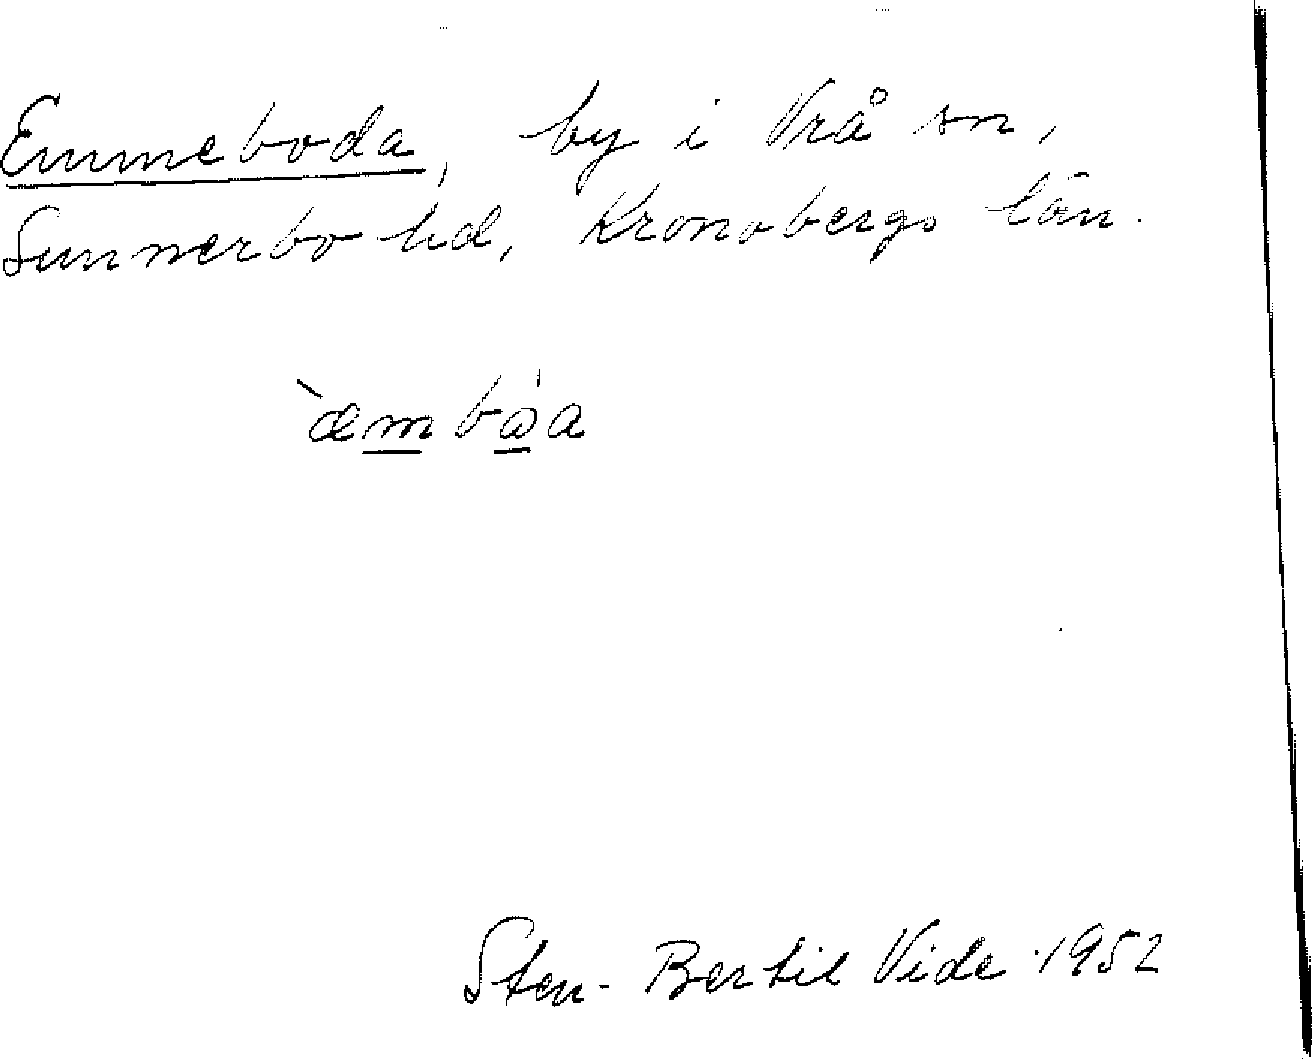 Emmeboda, by i Vrå sn,
Sunnerbo hd, Kronobergs län.
`æmbω̇a
Sten-Bertil Vide 1952